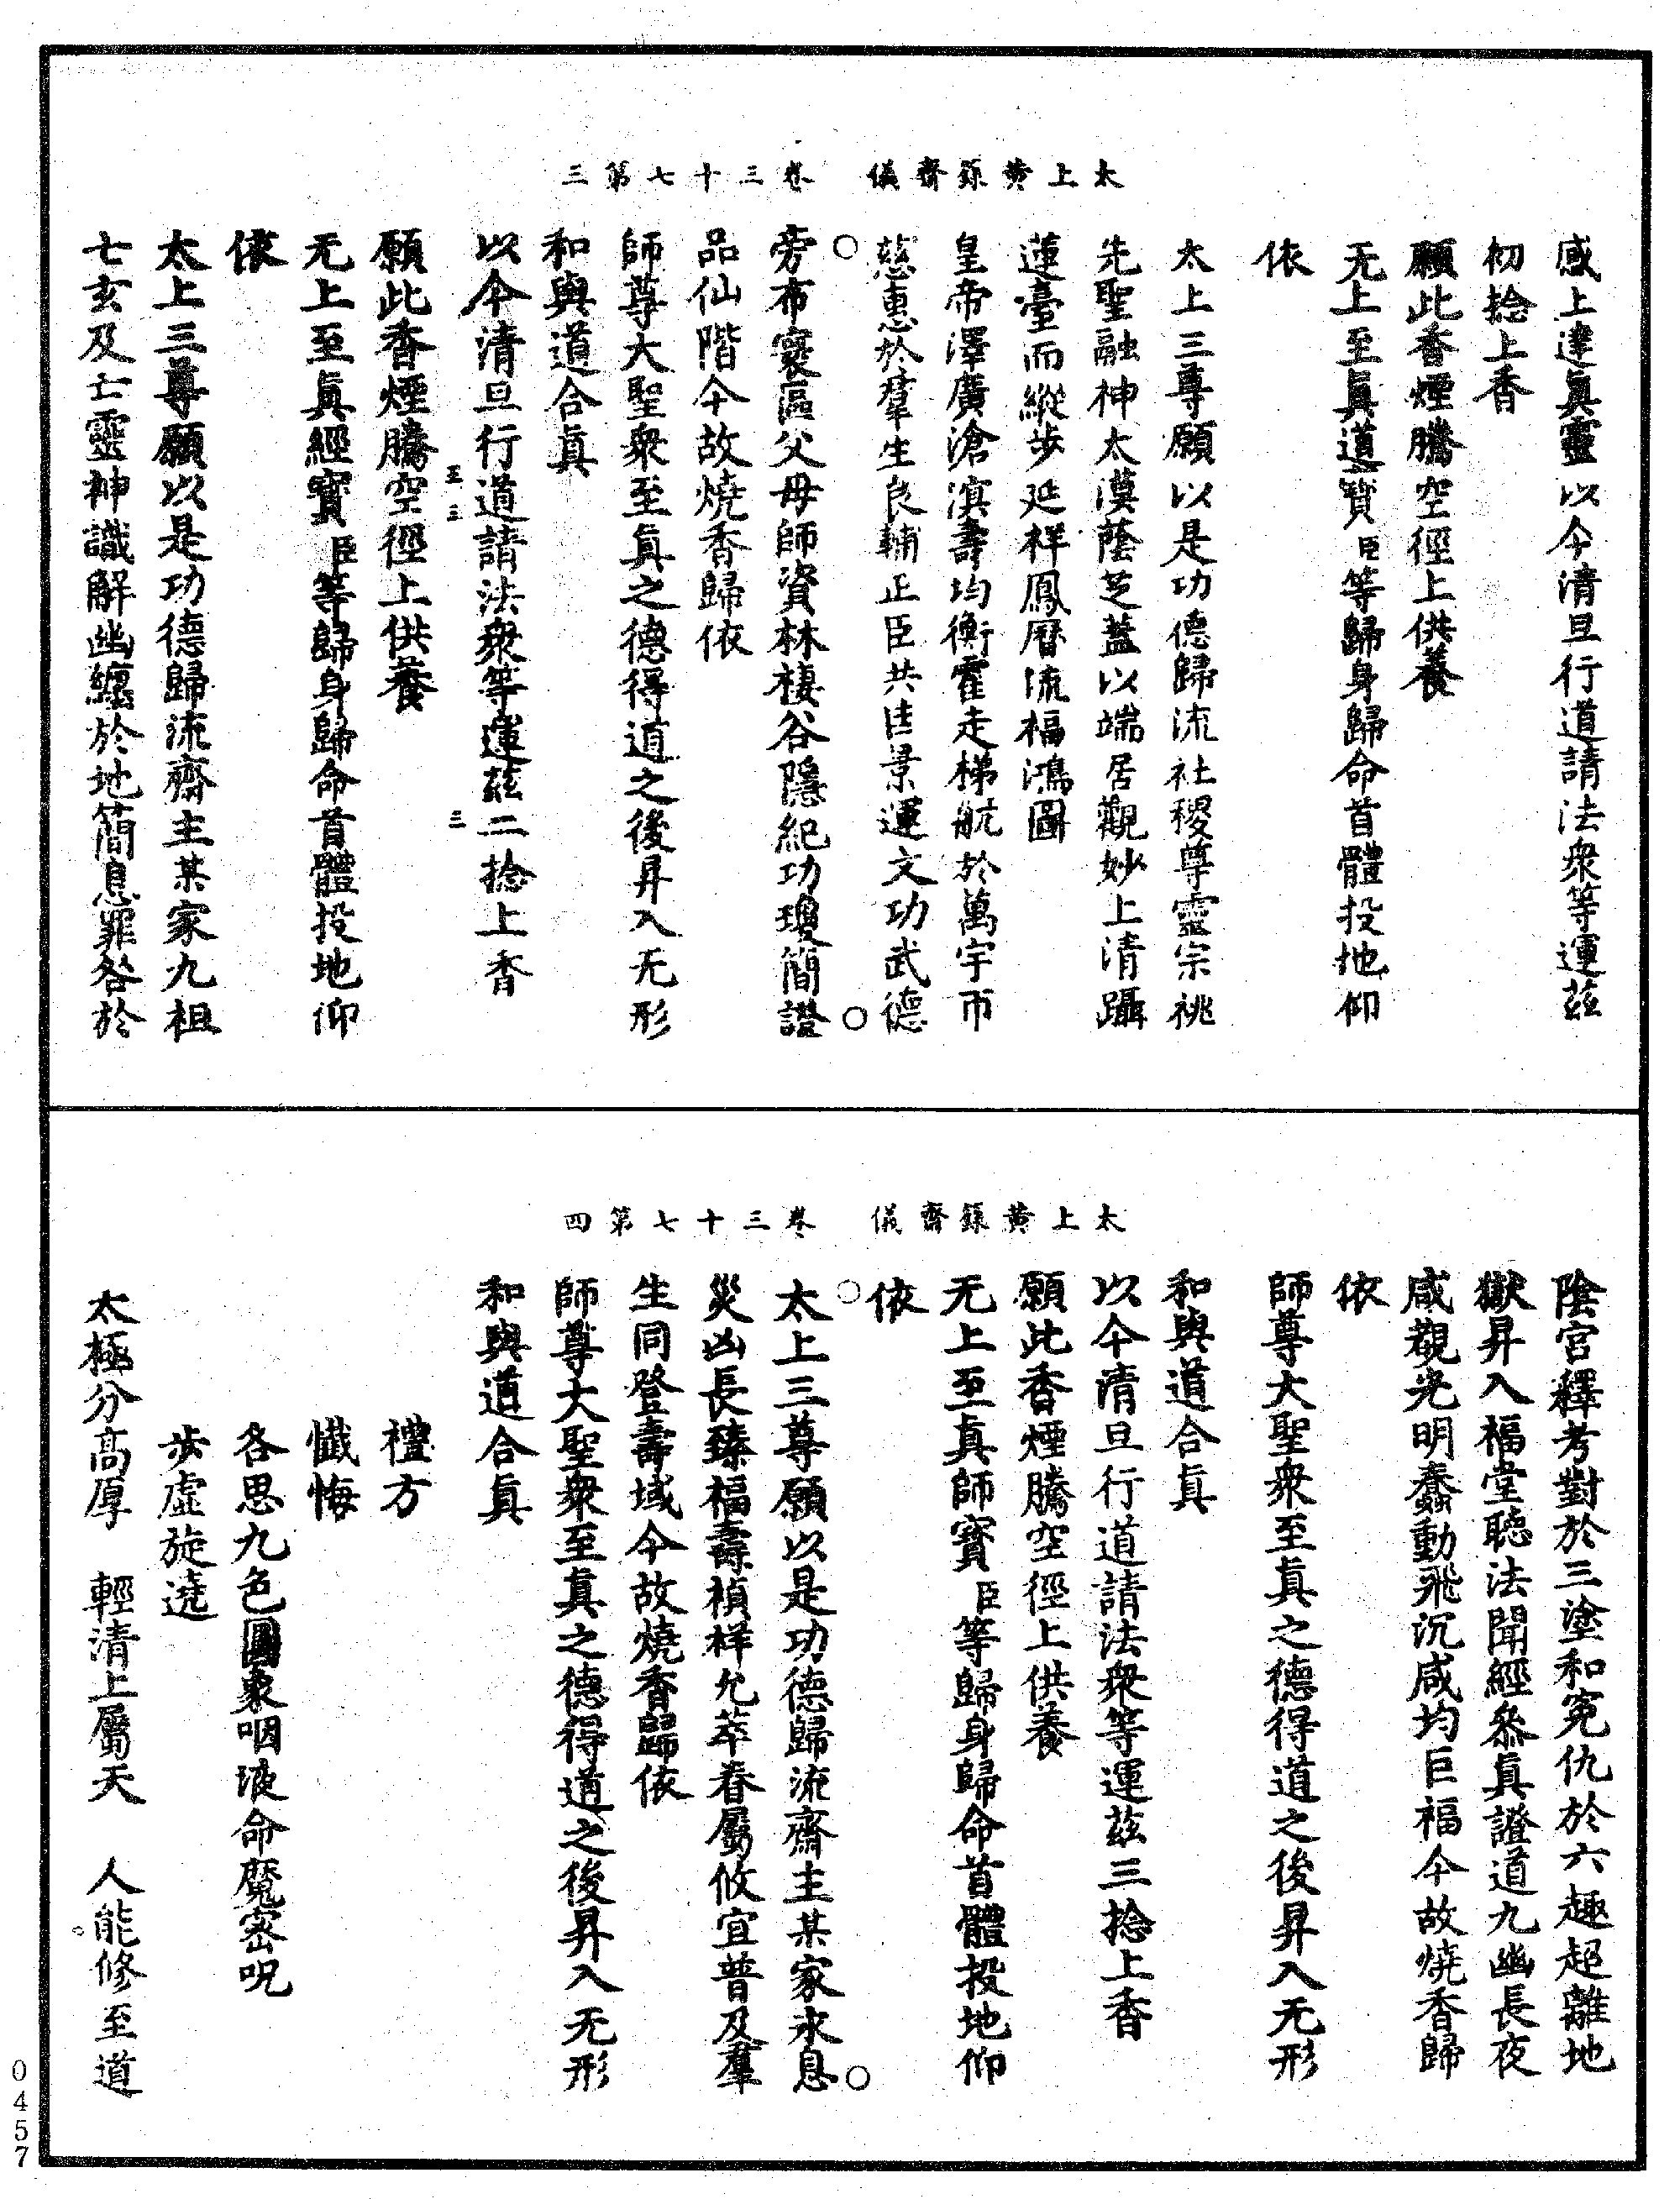 太上黃籙齋儀 卷三十七第三
感上達眞靈以今清旦行道請法衆等運茲
初捻上香
願此香煙騰空徑上供養
无上至眞道寳臣等歸身歸命首體投地仰
依
太上三尊願以是功德歸流社稷尊靈宗祧
先聖融神太漠蔭芝蓋以端居觀妙上清躡
蓮臺而縱步延祥鳳曆流福鴻圖
皇帝澤廣滄溟壽均衡霍走梯航於萬宇帀
慈惠於羣生良輔正臣共佐景運文功武德
旁布寰區父母師資林棲谷隱紀功瓊簡證
品仙階今故燒香歸依
師尊大聖衆至眞之德得道之後昇入无形
和與道合眞
以今清旦行道請法衆等運茲二捻上香
至三 三
願此香煙騰空徑上供養
无上至眞經寳臣等歸身歸命首體投地仰
依
太上三尊願以是功德歸流齋主某家九祖
七玄及亡靈神識解幽纏於地簡息罪咎於
太上黃籙齋儀 卷三十七第四
陰宮釋考對於三塗和冤仇於六趣超離地
獄昇入福堂聽法聞經叅眞證道九幽長夜
咸覩光明蠢動飛沉咸均巨福今故燒香歸
依
師尊大聖衆至眞之德得道之後昇入无形
和與道合眞
以今清旦行道請法衆等運茲三捻上香
願此香煙騰空徑上供養
无上至眞師寳臣等歸身歸命首體投地仰
依
太上三尊願以是功德歸流齋主某家永息
災凶長臻福壽禎祥允萃眷屬攸宜普及羣
生同登壽域今故燒香歸依
師尊大聖衆至眞之德得道之後昇入无形
和與道合眞
禮方
懺悔
各思九色圓象咽液命魔密呪
步虛旋遶
太極分高厚 輕清上屬天 人能修至道
0457